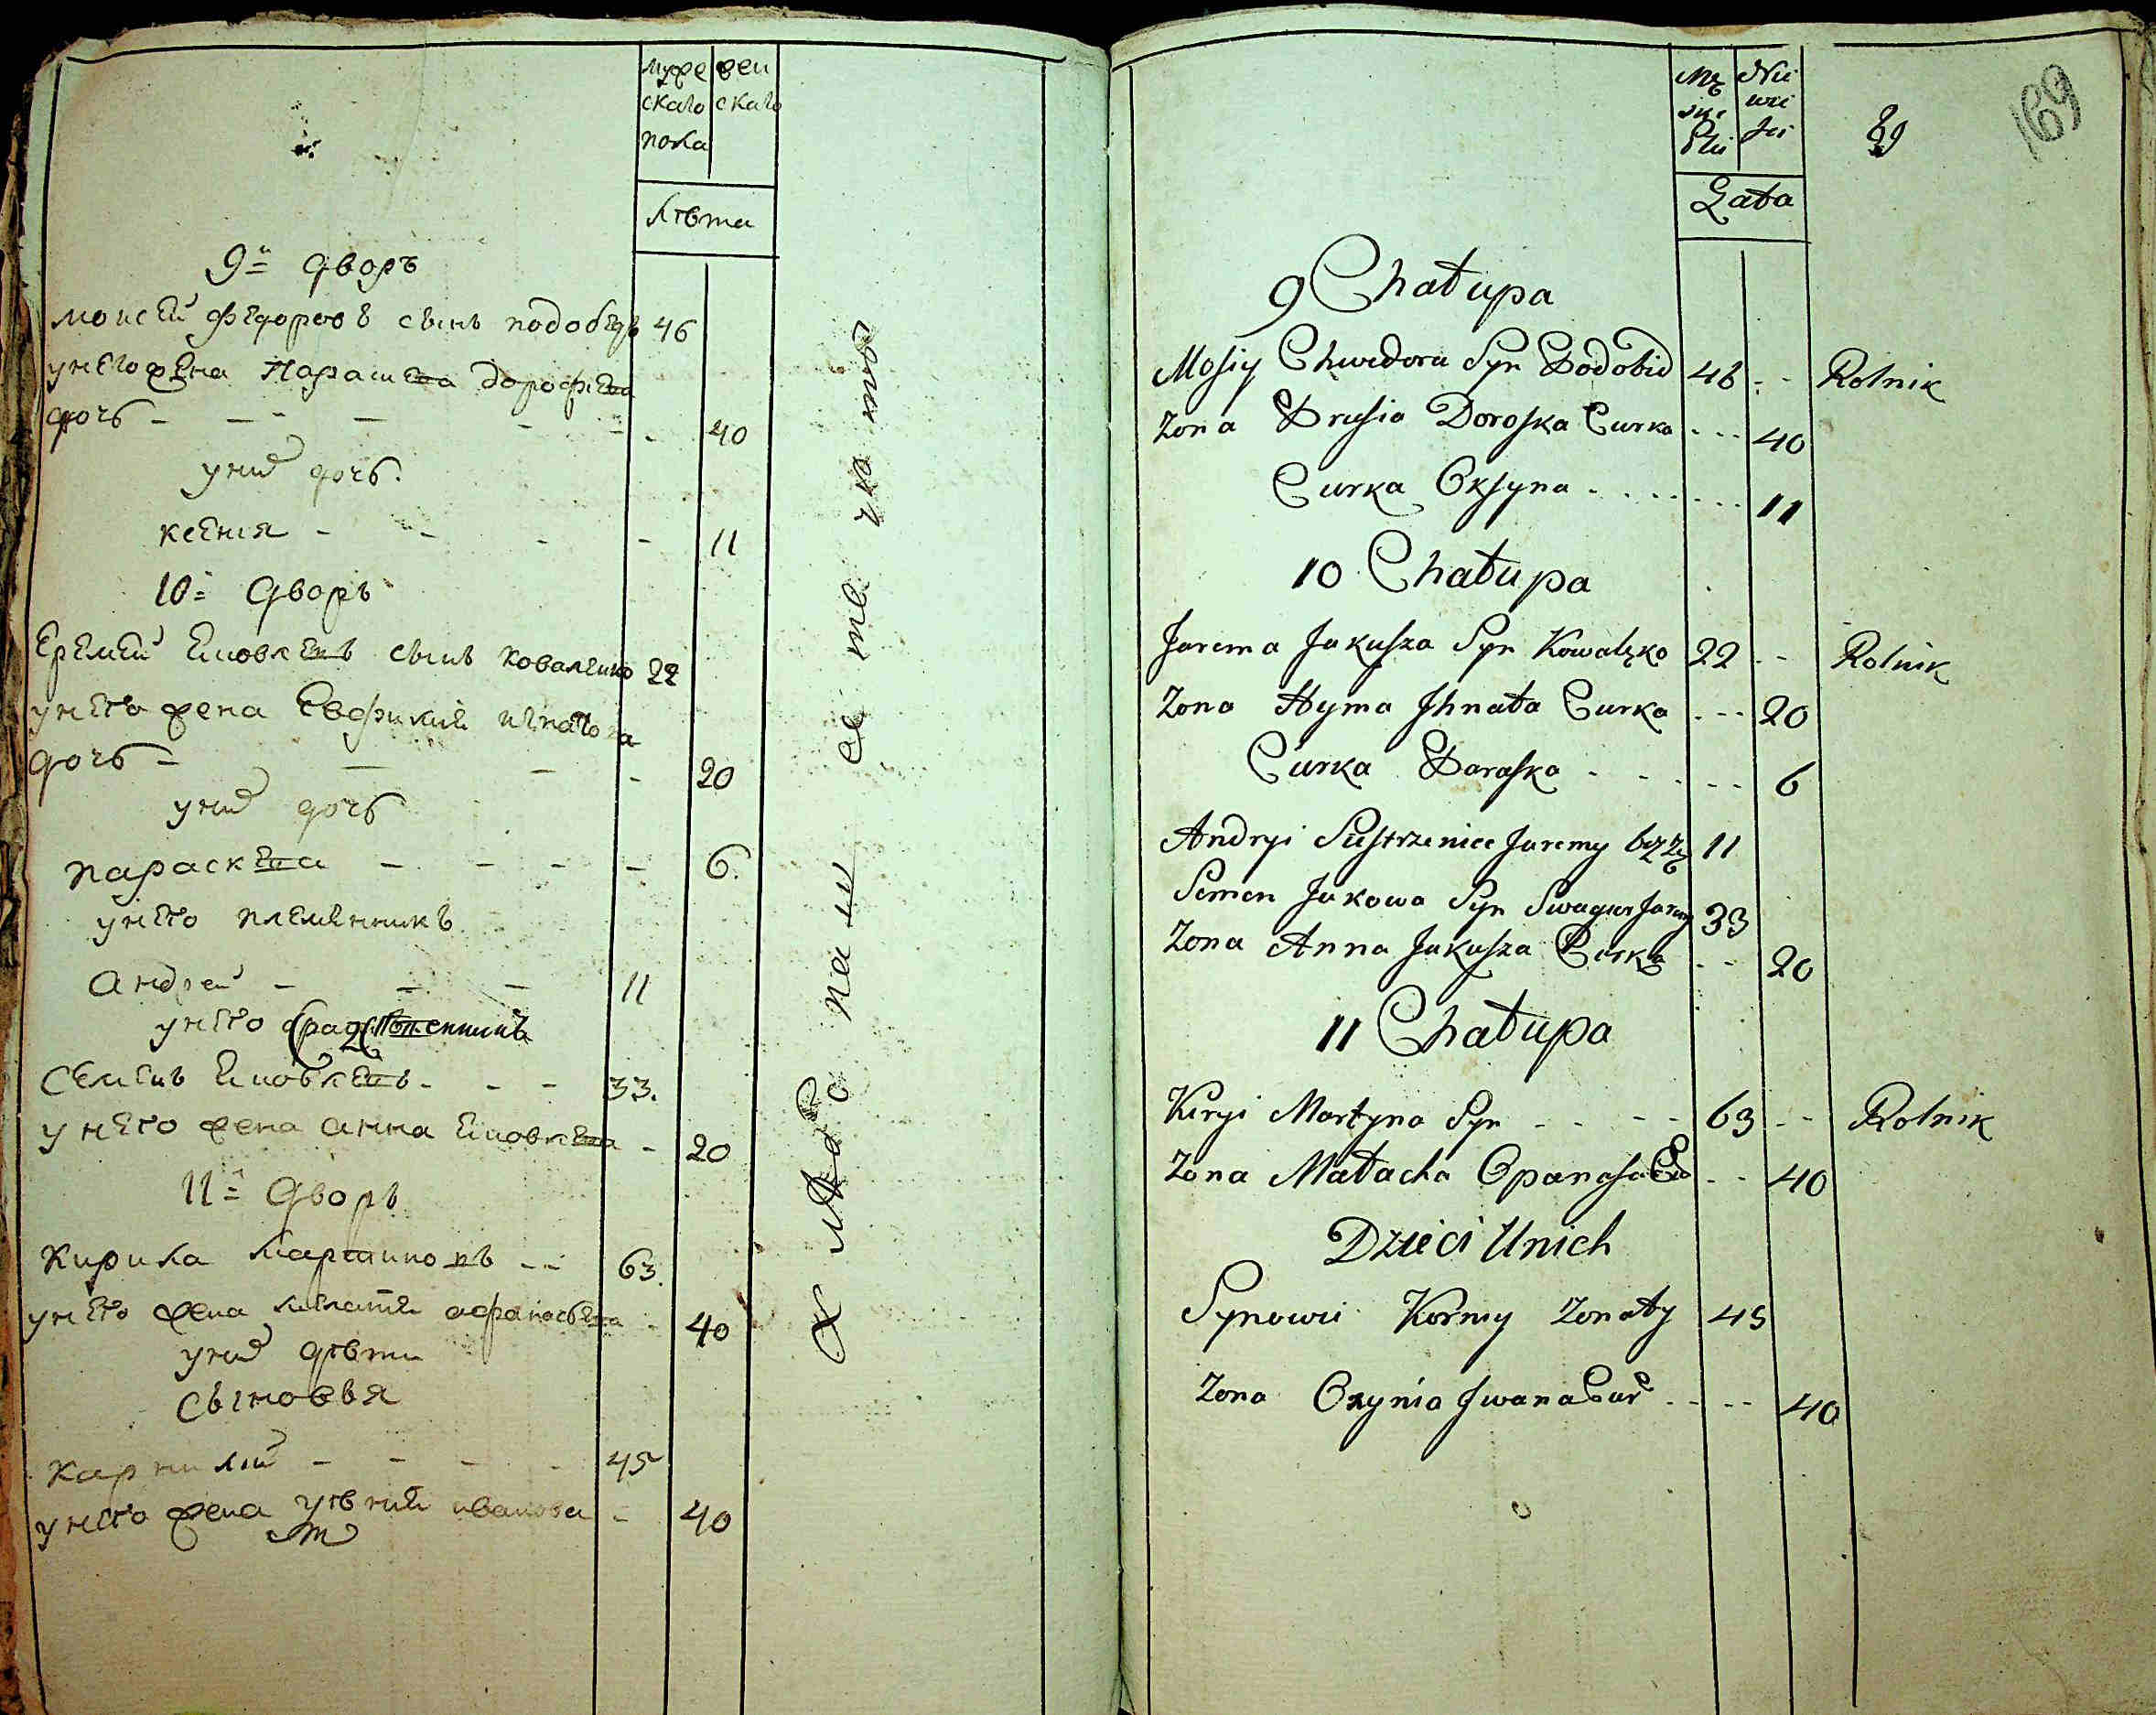 муже жен
скаго скаго
пола
лѣта
9й дворъ
моисей Федоровъ сынъ подобедъ 46
унего жена Параскева дорофеева
дочь - - - - 40
уних дочь.
ксения - - - - 11
10й дворъ
Еремей Еиовлевъ сынъ коваленко 22
унего жена Евфимия игнатова
дочь - - - - 20
уних дочь
параскева - - - - 6.
унего племенникъ
андрей - - - 11
унего
Семенъ Еиовлевъ - - - 33.
унего жена анна Еиовлева - 20
11й дворъ
кирила мартиновъ - - 63.
унего жена афанасьева - 40
уних дѣти
сыновья
карнилий - - - - 45
унего жена иванова - 40
Mę Nie
skie wie
Płci ści
Lata
89
169
9 Chałupa
Mosiy Chwedora Syn Podobid 46 - - Rolnik
Zona Prusia Doroska Curka - - - 40
Curka Oksyna - - - - - - 11
10 Chałupa
Jarema Jakusza Syn Kowalęko 22 - - Rolnik
Zona Hyma Jhnata Curka - - - 20
Curka Paraska - - - - - 6
Andryi Siestrzenice Jaremy bęz Zę 11
Semen Jakowa Syn Swagier Jaremy 33
Zona Anna Jakusza Curka - - 20
11 Chałupa
Kiryi Martyna Syn - - - - 63 - - Rolnik
Zona Małacha Opanasa Cur - - 40
Dzieci Unich
Synowie Korniy Zonaty 45
Zona Ozynia Jwana Cur - - - - 40